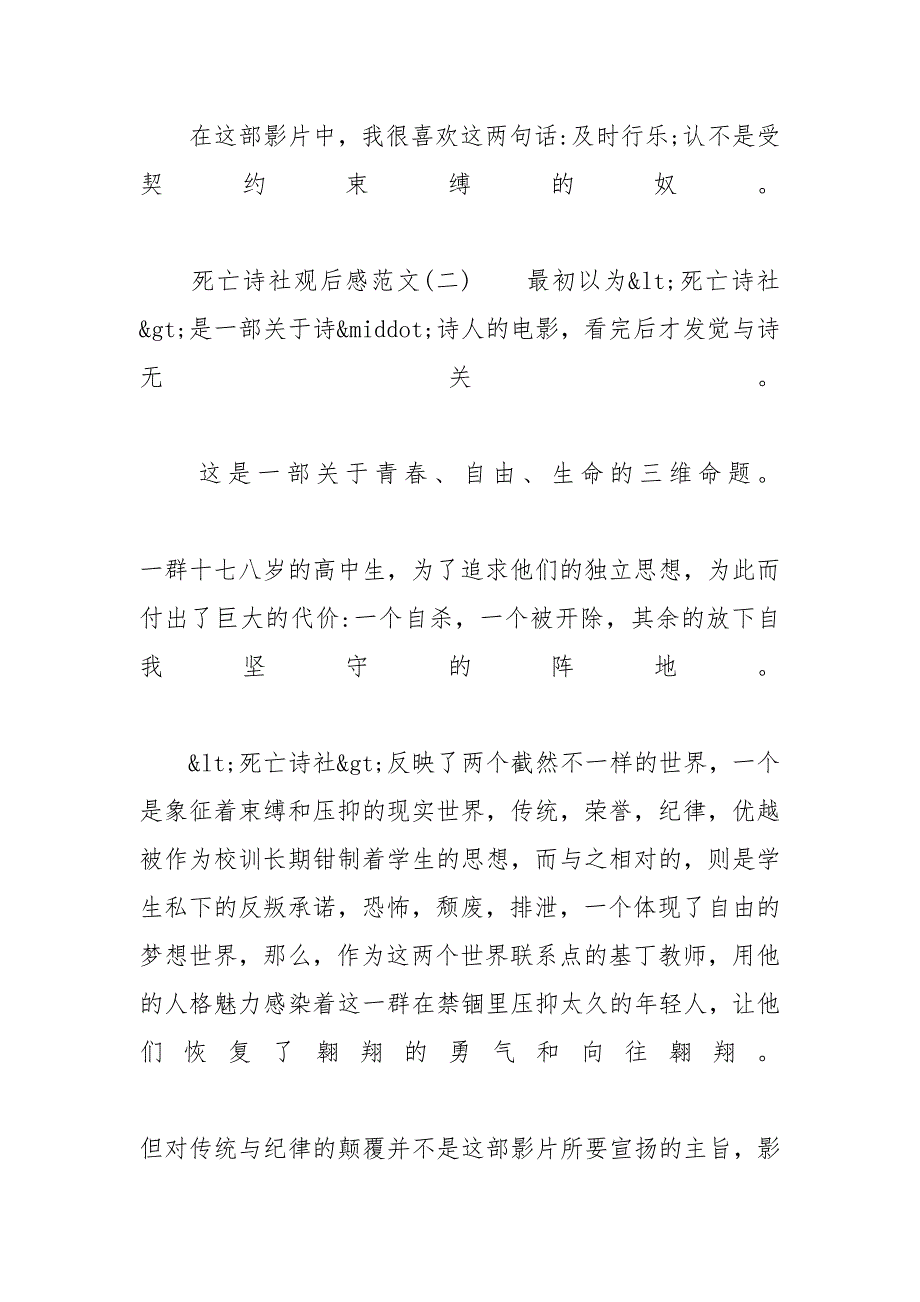 在这部影片中，我很喜欢这两句话:及时行乐;认不是受
契约束缚的奴。
死亡诗社观后感范文(二)　　最初以为&lt;死亡诗社
&gt;是一部关于诗&middot;诗人的电影，看完后才发觉与诗
无关。
这是一部关于青春、自由、生命的三维命题。
一群十七八岁的高中生，为了追求他们的独立思想，为此而
付出了巨大的代价:一个自杀，一个被开除，其余的放下自
我坚守的阵地。
&lt;死亡诗社&gt;反映了两个截然不一样的世界，一个
是象征着束缚和压抑的现实世界，传统，荣誉，纪律，优越
被作为校训长期钳制着学生的思想，而与之相对的，则是学
生私下的反叛承诺，恐怖，颓废，排泄，一个体现了自由的
梦想世界，那么，作为这两个世界联系点的基丁教师，用他
的人格魅力感染着这一群在禁锢里压抑太久的年轻人，让他
们恢复了翱翔的勇气和向往翱翔。
但对传统与纪律的颠覆并不是这部影片所要宣扬的主旨，影